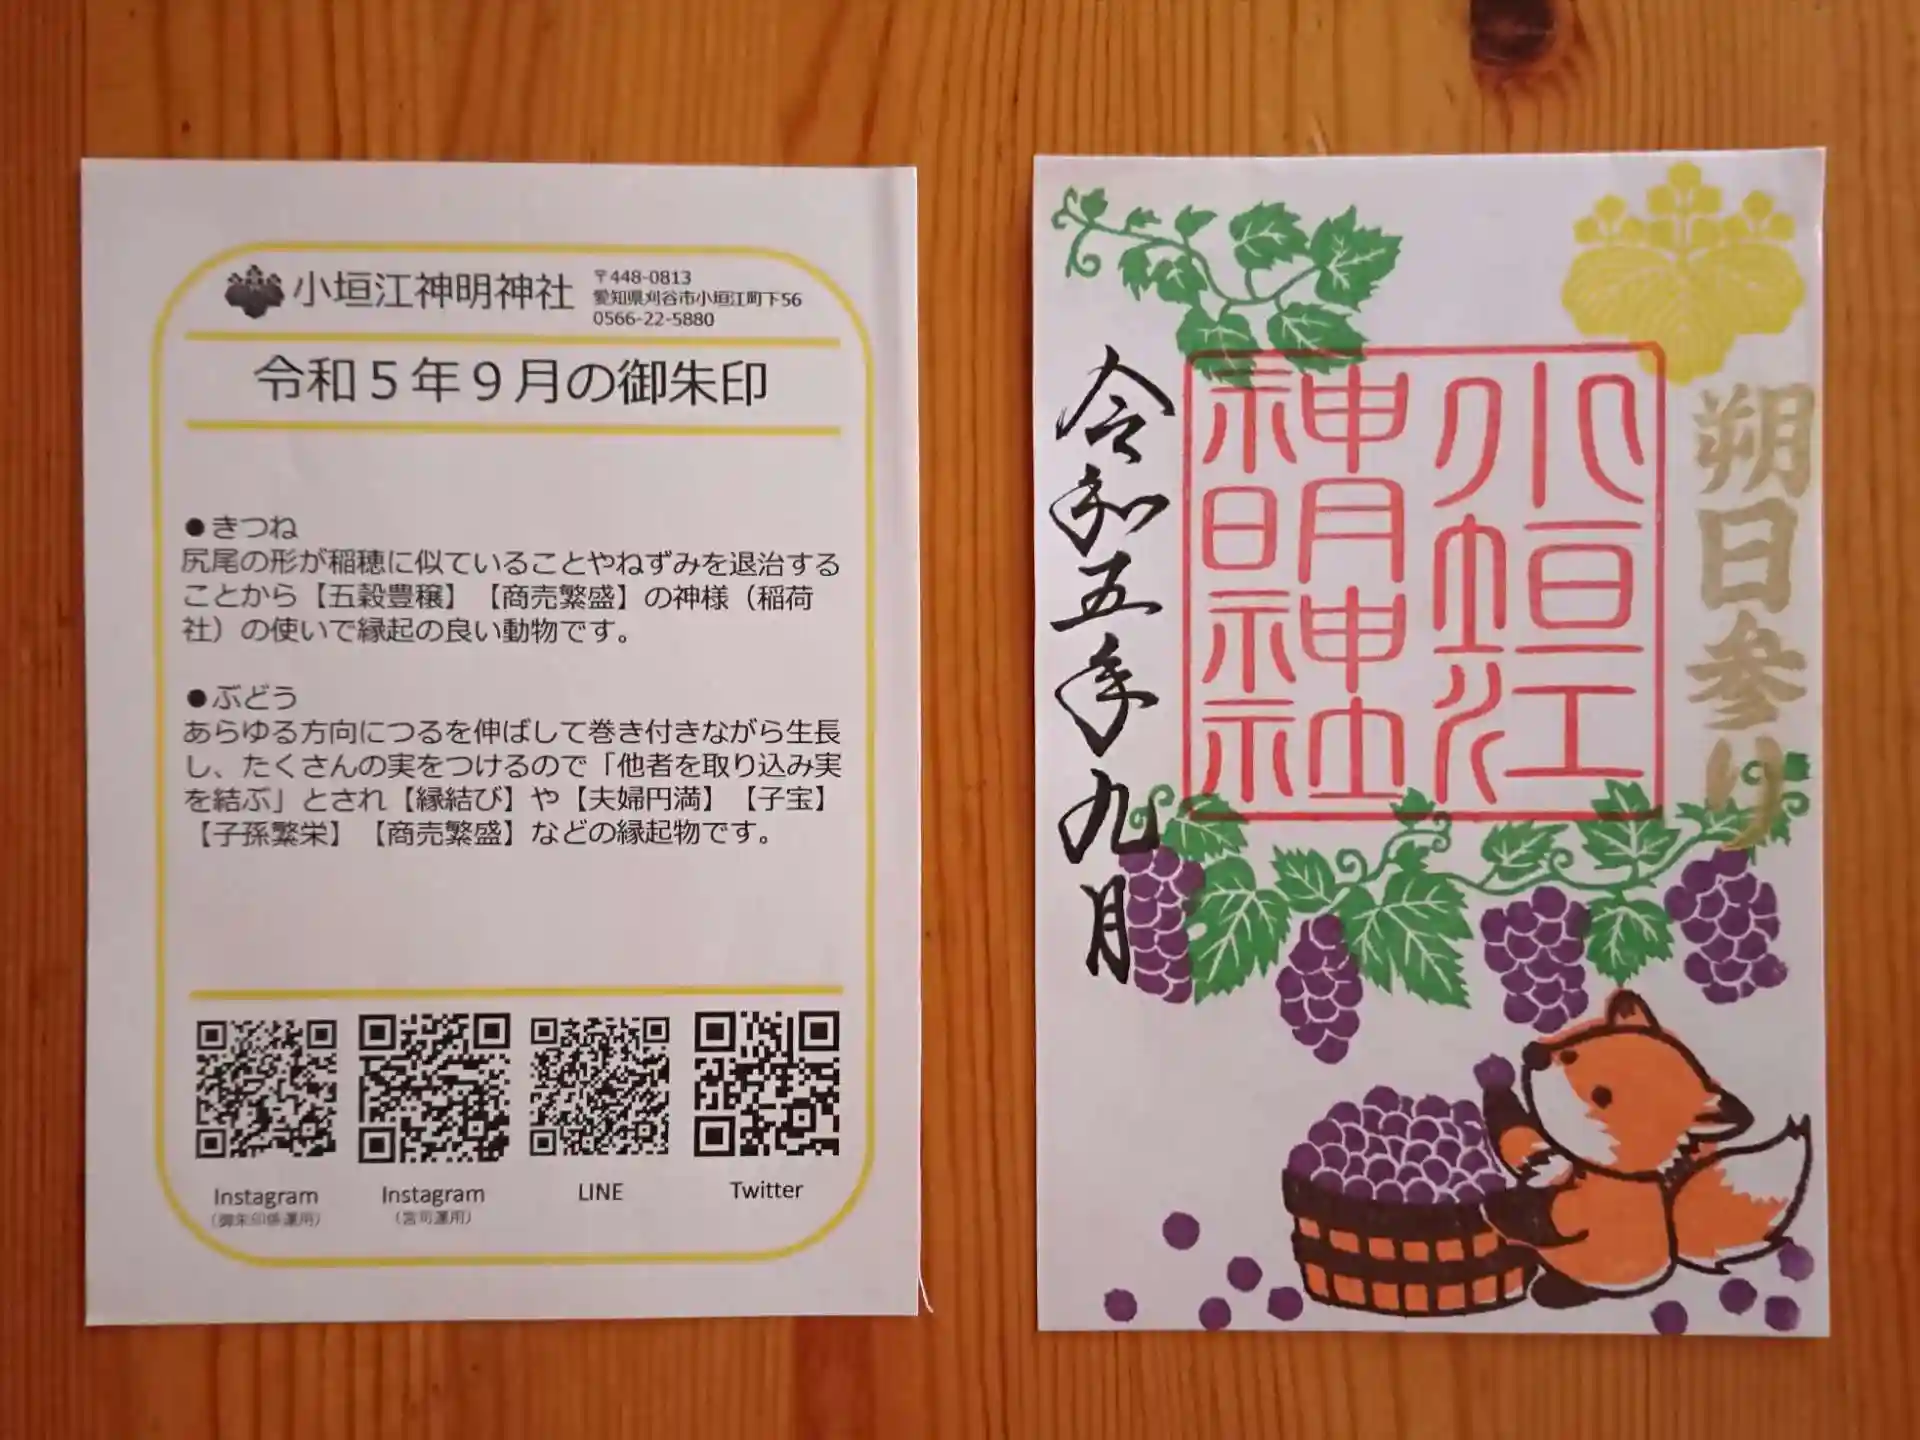 小垣江神明神社
〒448-0813
愛知県刈谷市小垣江町下56
0566-22-5880
令和５年９月の御朱印
●きつね
尻尾の形が稲穂に似ていることやねずみを退治する
ことから【五穀豊穣】【商売繁盛】の神様（稲荷
社）の使いで縁起の良い動物です。
●ぶどう
あらゆる方向につるを伸ばして巻き付きながら生長
し、たくさんの実をつけるので「他者を取り込み実
を結ぶ」とされ【縁結び】や【夫婦円満】【子宝】
【子孫繁栄】【商売繁盛】などの縁起物です。
Instagram
（御朱印係運用）
Instagram
（宮司運用）
LINE
Twitter
朔日参り
小垣江
神明神社
令和五年九月